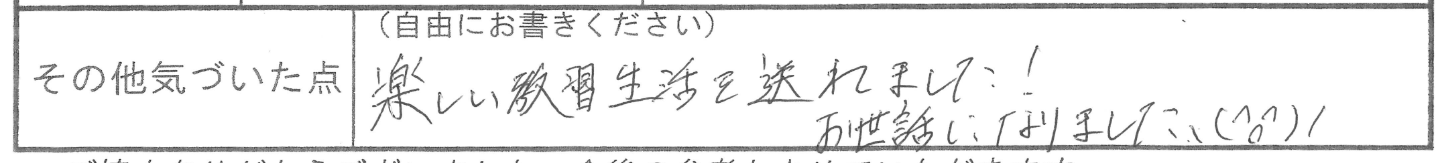 （自由にお書きください）
その他気づいた点
楽しい教習生活を送れました！
お世話になりました、(^o^)/